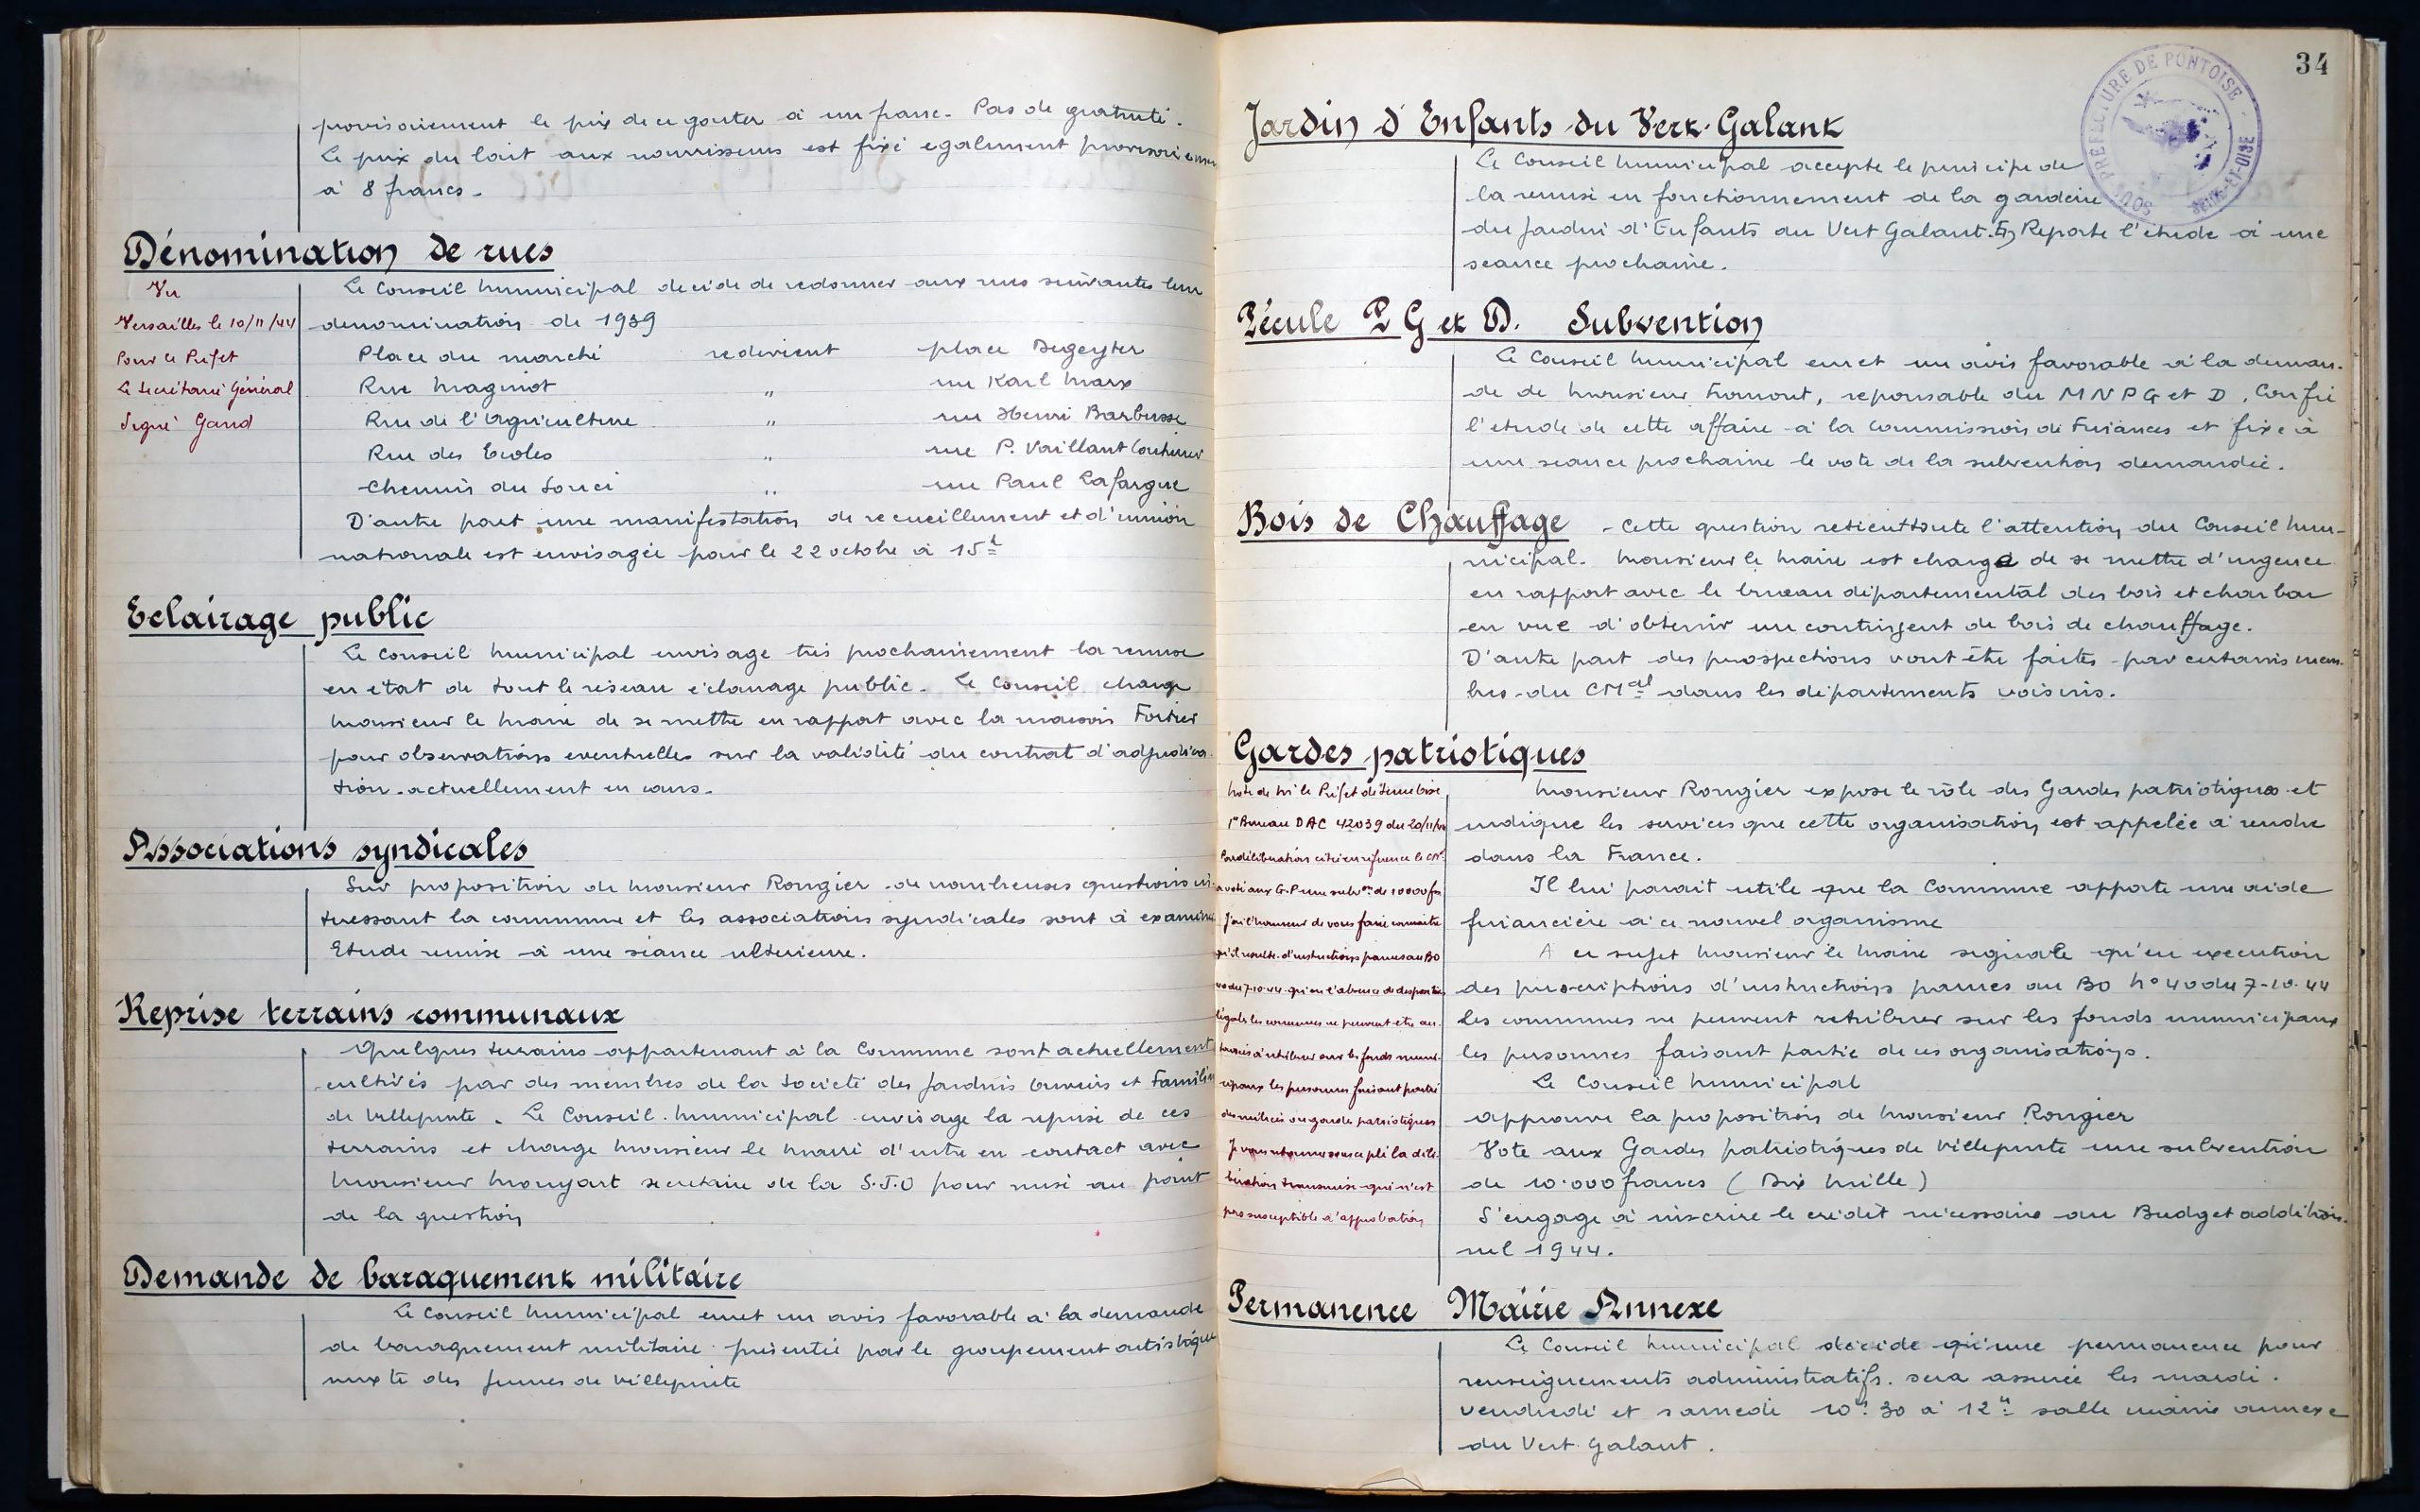 provisoirement le prix de ce gouter à un franc. Pas de gratuité.
Le prix du lait aux nourrissons est fixé egalement provisoirement
à 8 francs.
Dénomination de rues
Vu
Versailles le 10/11/44
Pour le Préfet
Le Secrétaire Général
Signé Gand
Le Conseil Municipal decide de redonner aux rues suivantes leur
denomination de 1939
Place du marché redevient place Degeyter
Rue Maginot " rue Karl Marx
Rue de l'Agriculture " rue Henri Barbusse
Rue des Ecoles " rue P. Vaillant Couturier
Chemin du Souci " rue Paul Lafargue
D'autre part une manifestation de recueillement et d'union
nationale est envisagée pour le 22 octobre à 15h
Eclairage public
Le Conseil Municipal envisage très prochainement la remise
en état de tout le réseau éclairage public. Le Conseil charge
Monsieur le Maire de se mettre en rapport avec la maison Fortier
pour observations eventuelles sur la validité du contrat d'adjudica-
tion actuellement en cours.
Associations syndicales
Sur proposition de Monsieur Rongier de nombreuses questions in-
teressant la commune et les associations syndicales sont à examiner
Etude remise à une séance ulterieure.
Reprise terrains communaux
Quelques terrains appartenant à la Commune sont actuellement
cultivés par des membres de la Société des Jardins Ouvriers et Familiaux
de Villepinte. Le Conseil Municipal envisage la reprise de ces
terrains et charge Monsieur le Maire d'entrer en contact avec
Monsieur secretaire de la S.J.O pour mise au point
de la question
Demande de baraquement militaire
Le Conseil Municipal emet un avis favorable à la demande
de baraquement militaire présentée par le groupement artistique
mixte des jeunes de Villepinte
34
SOUS PRÉFECTURE DE PONTOISE
SEINE-ET-OISE
Jardin d'Enfants du Vert-Galant
Le Conseil Municipal accepte le principe de
la remise en fonctionnement de la garderie
du Jardin d'Enfants du Vert Galant. Reporte l'étude à une
seance prochaine.
Pécule P G et D. Subvention
Le Conseil Municipal emet un avis favorable à la deman-
de de Monsieur Fromont, reponsable du MNPG et D, Confie
l'etude de cette affaire à la Commission de Finances et fixe à
une seance prochaine le vote de la subvention demandée.
Bois de Chauffage - Cette question retient toute l'attention du Conseil Mu-
nicipal. Monsieur le Maire est chargé de se mettre d'urgence
en rapport avec le bureau départemental des bois et charbon
en vue d'obtenir un contingent de bois de chauffage.
D'autre part des prospections vont être faites par certains mem-
bres du CMal dans les départements voisins.
Gardes patriotiques
Note de Mr le Préfet de Seine Oise
1er Bureau DAC 42039 du 20/11/44
Par délibération citée en référence le CMal
a voté aux G.P une subvon de 10000 frs
J'ai l'honneur de vous faire connaitre
qu'il résulte d'instructions parues au BO
40 du 7-10-44 qu'en l'absence de dispositions
légales les communes ne peuvent être au-
torisées à rétribuer sur les fonds muni-
cipaux les personnes faisant partie
des milices ou gardes patriotiques
Je vous retourne sous ce pli la déli-
bération transmise qui n'est
pas susceptible d'approbation
Monsieur Rongier expose le rôle des Gardes patriotiques et
indique les services que cette organisation est appelée à rendre
dans la France.
Il lui parait utile que la Commune apporte une aide
financière à ce nouvel organisme
A ce sujet Monsieur le Maire signale qu'en execution
des prescriptions d'instructions parues au BO No 40 du 7-10-44
les communes ne peuvent retribuer sur les fonds municipaux
les personnes faisant partie de ces organisations.
Le Conseil Municipal
approuve la proposition de Monsieur Rongier
Vote aux Gardes patriotiques de Villepinte une subvention
de 10.000 francs (Dix Mille)
S'engage à inscrire le crédit nécessaire au Budget addition-
nel 1944.
Permanence Mairie Annexe
Le Conseil Municipal décide qu'une permanence pour
renseignements administratifs sera assurée les mardi.
vendredi et samedi 10h 30 à 12h salle mairie annexe
du Vert Galant.